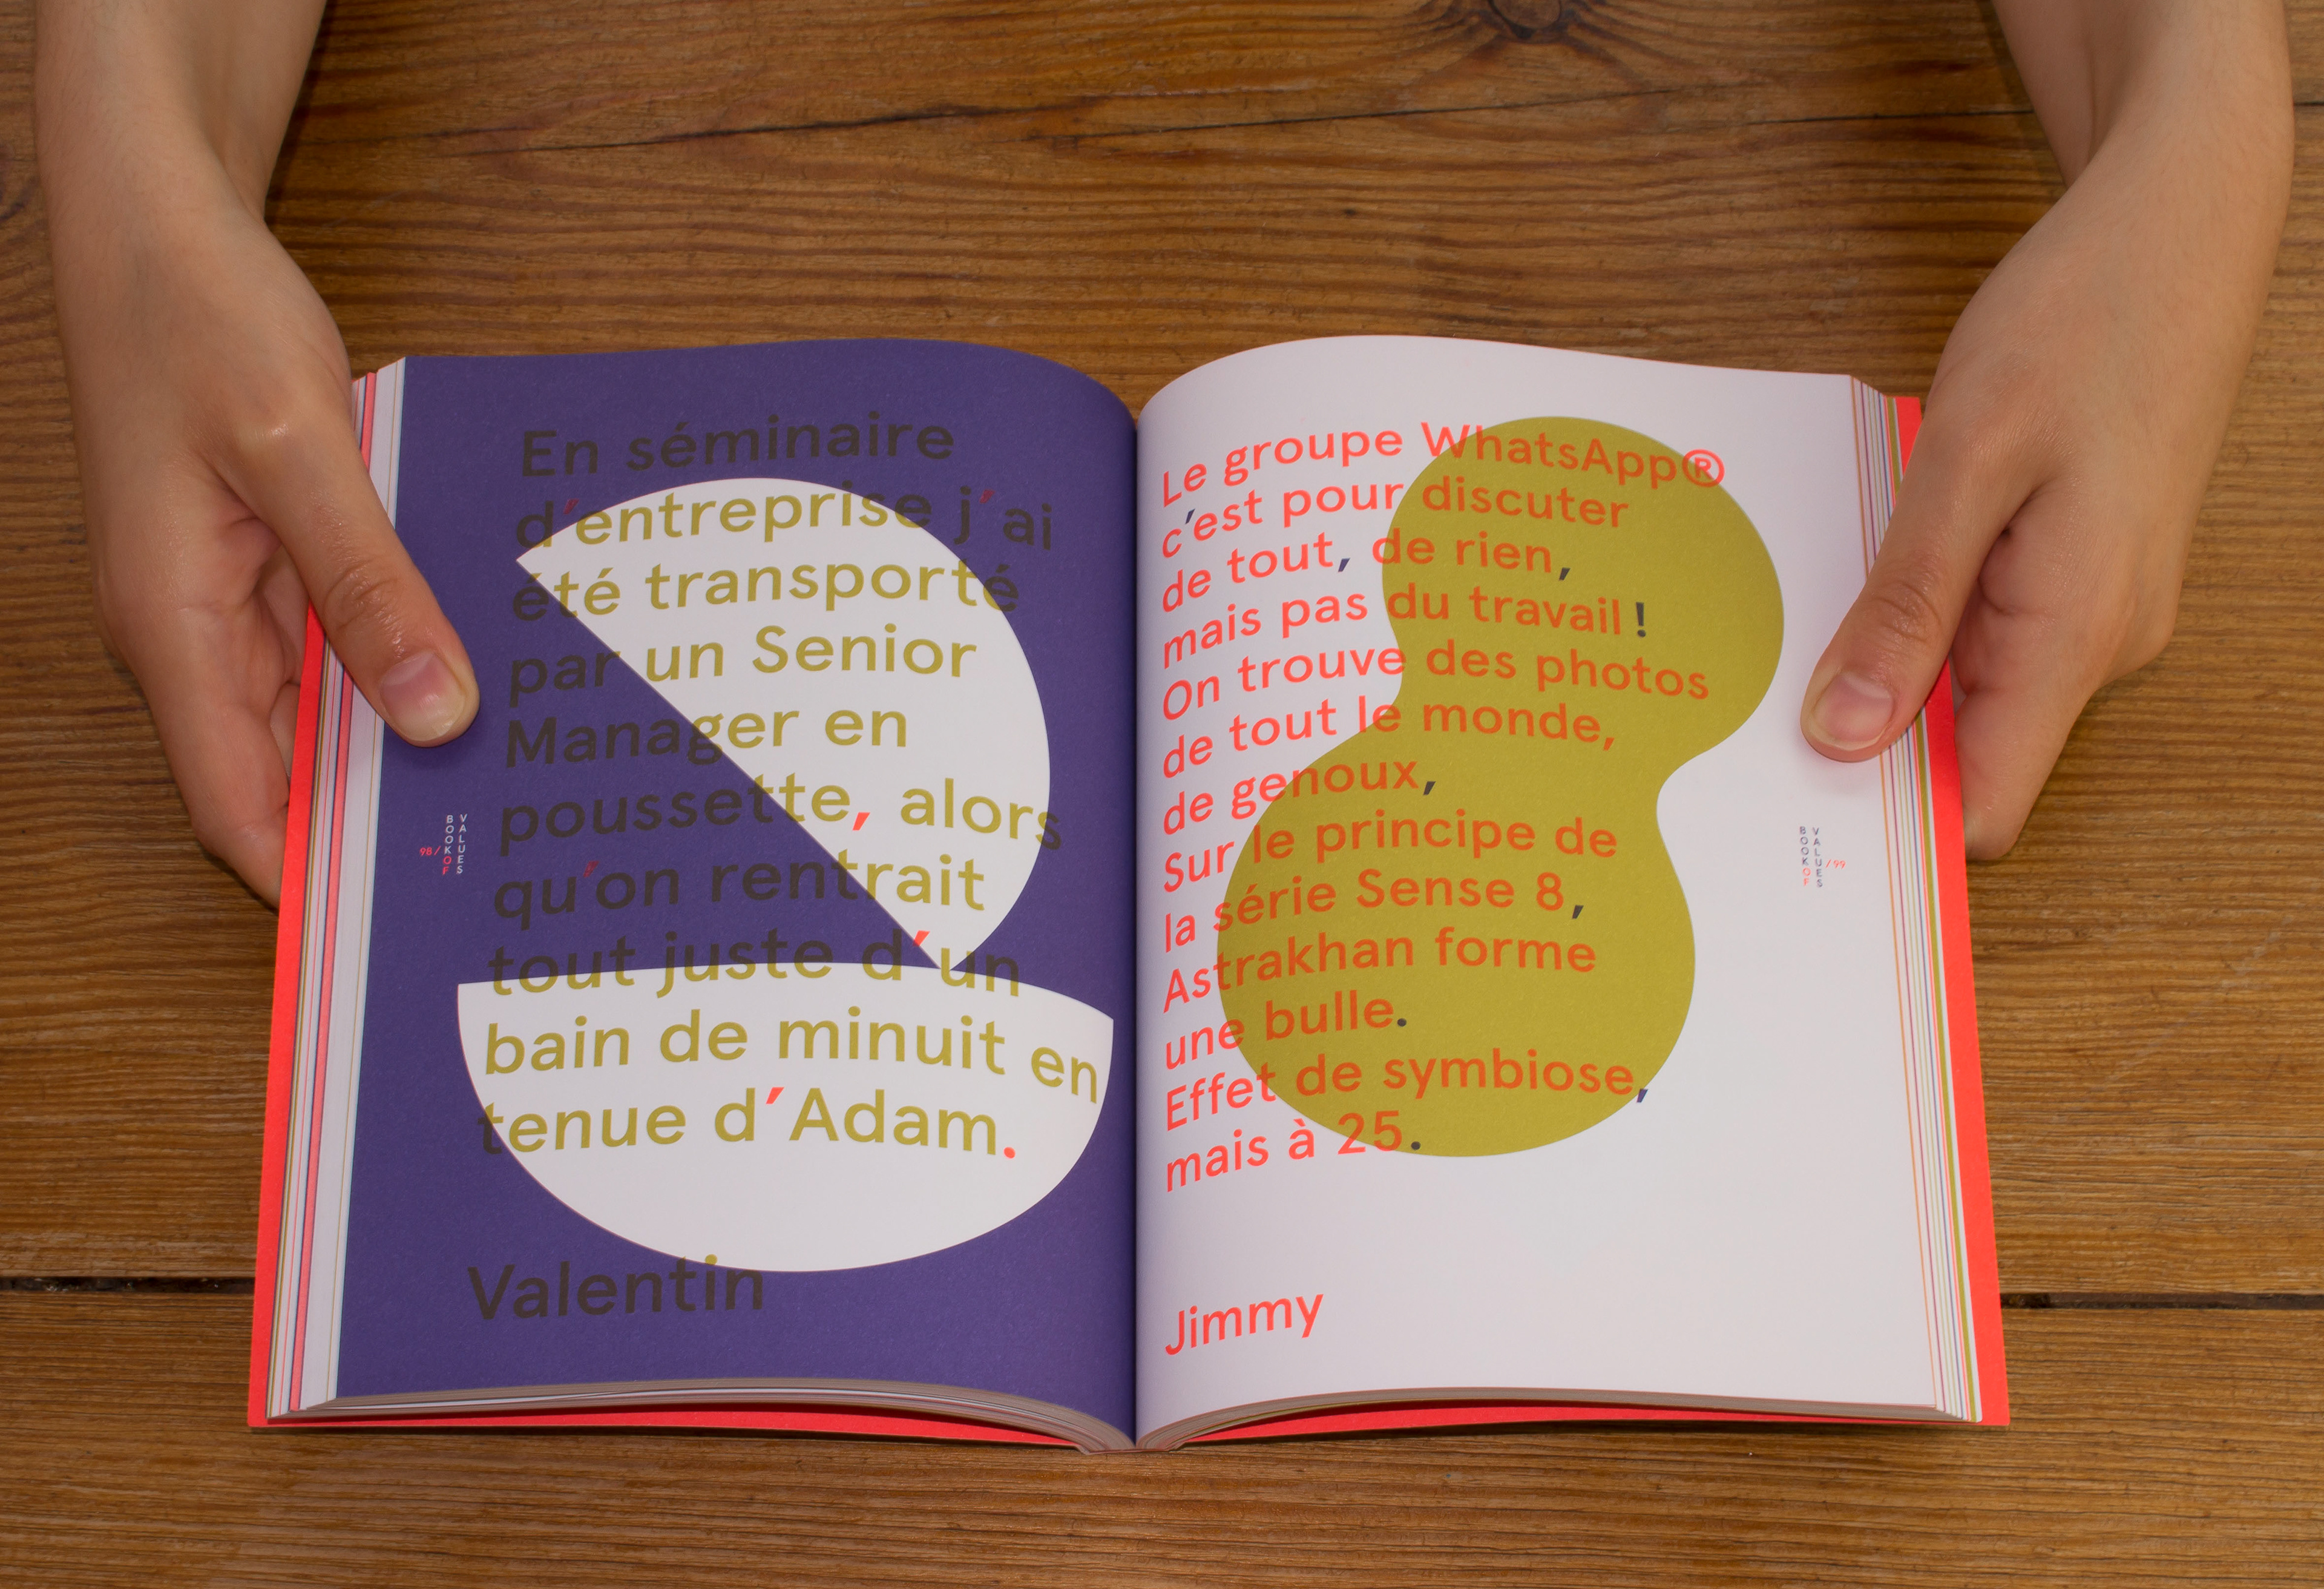 En séminaire
d'entreprise j'ai
été transporté
par un Senior
Manager en
poussette, alors
qu'on rentrait
tout juste d'un
bain de minuit en
tenue d'Adam.
Valentin
98/
BOOK OF
VALUES
Le groupe WhatsApp®
c'est pour discuter
de tout, de rien,
mais pas du travail !
On trouve des photos
de tout le monde,
de genoux,
Sur le principe de
la série Sense 8,
Astrakhan forme
une bulle.
Effet de symbiose,
mais à 25.
Jimmy
BOOK OF
VALUES
/99